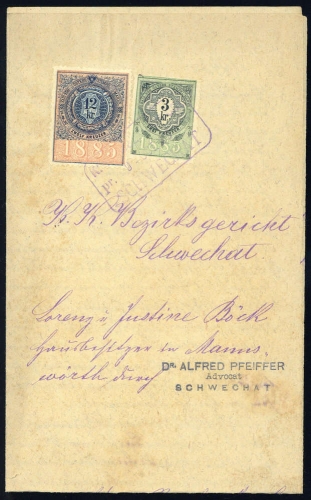 12
Kr.
1885
3
Kr.
1885
SCHWECHAT
K. K. Bezirksgericht
Schwechat
Lorenz u. Justine Böck
Hausbesitzer in Manns,
wörth durch
DR. ALFRED PFEIFFER
Advocat
SCHWECHAT